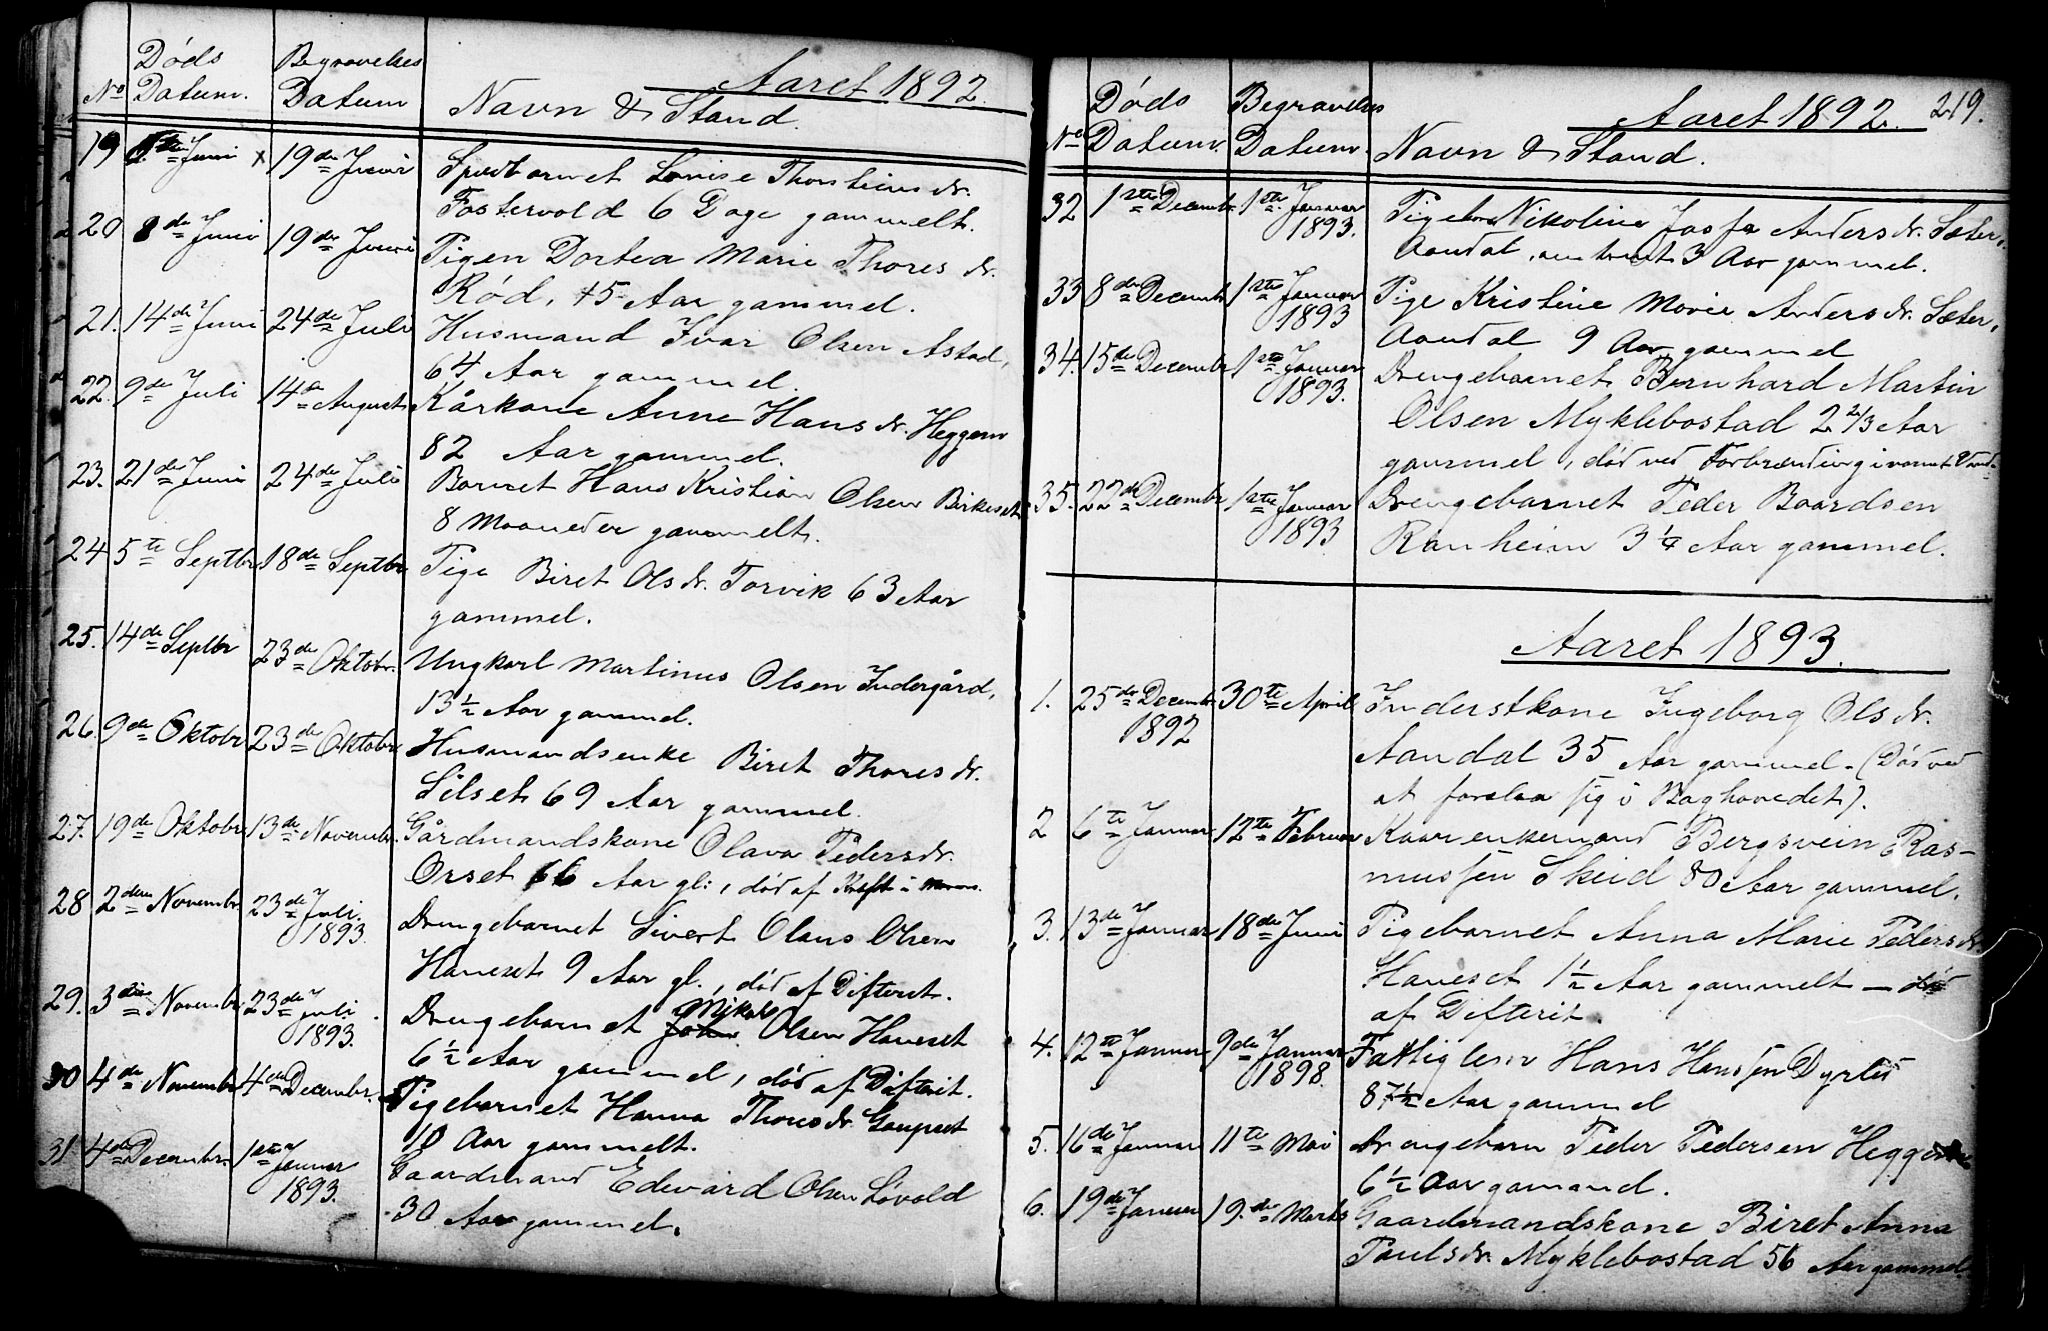 Aaret 1892.
Døds Begravelses
No Datum. Datum Navn & Stand.
19 Juni x 19de Juni Spædbarnet Lovise Thorsteinsdr.
Fostervold 6 Dage gammelt.
20 8de Juni 19de Juni Pigen Dortea Marie Thoresdr.
Rød, 45 Aar gammel.
21. 14de Juni 24de Juli Husmand Ivar Olsen Astad,
64 Aar gammel.
22. 9de Juli 14de August Kårkone Anne Hansdr. Heggem
82 Aar gammel.
23. 21de Juni 24de Juli Barnet Hans Kristian Olsen Birkeset
8 Maaneder gammelt.
24 5te Septbr 18de Septbr Pige Biret Olsdr. Torvik 63 Aar
gammel.
25. 14de Septbr 23de Oktobr. Ungkarl Martinus Olsen Indergård,
13½ Aar gammel.
26. 9de Oktobr 23de Oktobr. Husmandsenke Biret Thoresdr.
Silset 69 Aar gammel.
27. 19de Oktobr 13de Novembr. Gårdmandskone Olava Pedersdr.
Orset 66 Aar gl., død af Kræft i
28 2den Novembr. 23de Juli Drengebarnet Sivert Olaus Olsen
1893. Haneset 9 Aar gl., død af Difterit.
29. 3die Novembr 23de Juli Drengebarnet John Mikal Olsen Haneset
1893. 6½ Aar gammel, død af Difterit.
30 4de Novembr 4de Decembr. Pigebarnet Hanna Thoresdr. Gaupset
10 Aar gammelt.
31 4de Decembr. 1ste Januar Gaardmand Edevard Olsen Løvold
1893. 30 Aar gammel.
Aaret 1892. 219.
Døds Begravelses
No Datum. Datum. Navn & Stand.
32 1ste Decembr 1ste Januar Nikoline Andersdr. Sæter,
1893. Aandal, omtrent 3 Aar gammel.
33 8de Decembr 1ste Januar Pige Kristine Marie Andersdr. Sæter,
1893 Aandal 9 Aar gammel
34. 15de Decembr 1ste Januar Drengebarnet Bernhard Martin
1893. Olsen Myklebostad 2 2/3 Aar
gammel, død ved Forbrænding i varmt Vand.
35. 22de Decembr 1ste Januar Drengebarnet Peder Baardsen
1893 Ranheim 3¼ Aar gammel.
Aaret 1893.
1. 25de Decembr. 30te April Inderstkone Ingeborg Olsdr.
1892 Aandal 35 Aar gammel. (Død ved
at forslaa sig i Baghovedet).
2 6te Januar 12te Februar Kaarenkemand Bergsvein Ras-
mussen Skeid 80 Aar gammel.
3. 13de Januar 18de Juni Pigebarnet Anna Marie Pedersdr.
Haneset 1½ Aar gammelt — død
af Difterit.
4. 12te Januar 9de Januar Fattiglem Hans Hanssen Dyrli
1898. 87½ Aar gammel
5. 16de Januar 11te Mai Drengebarn Peder Pedersen
6½ Aar gammel.
6. 19de Januar 19.de Marts Gaardmandskone Biret Anna
Paulsdr. Myklebostad 56 Aar gammel.